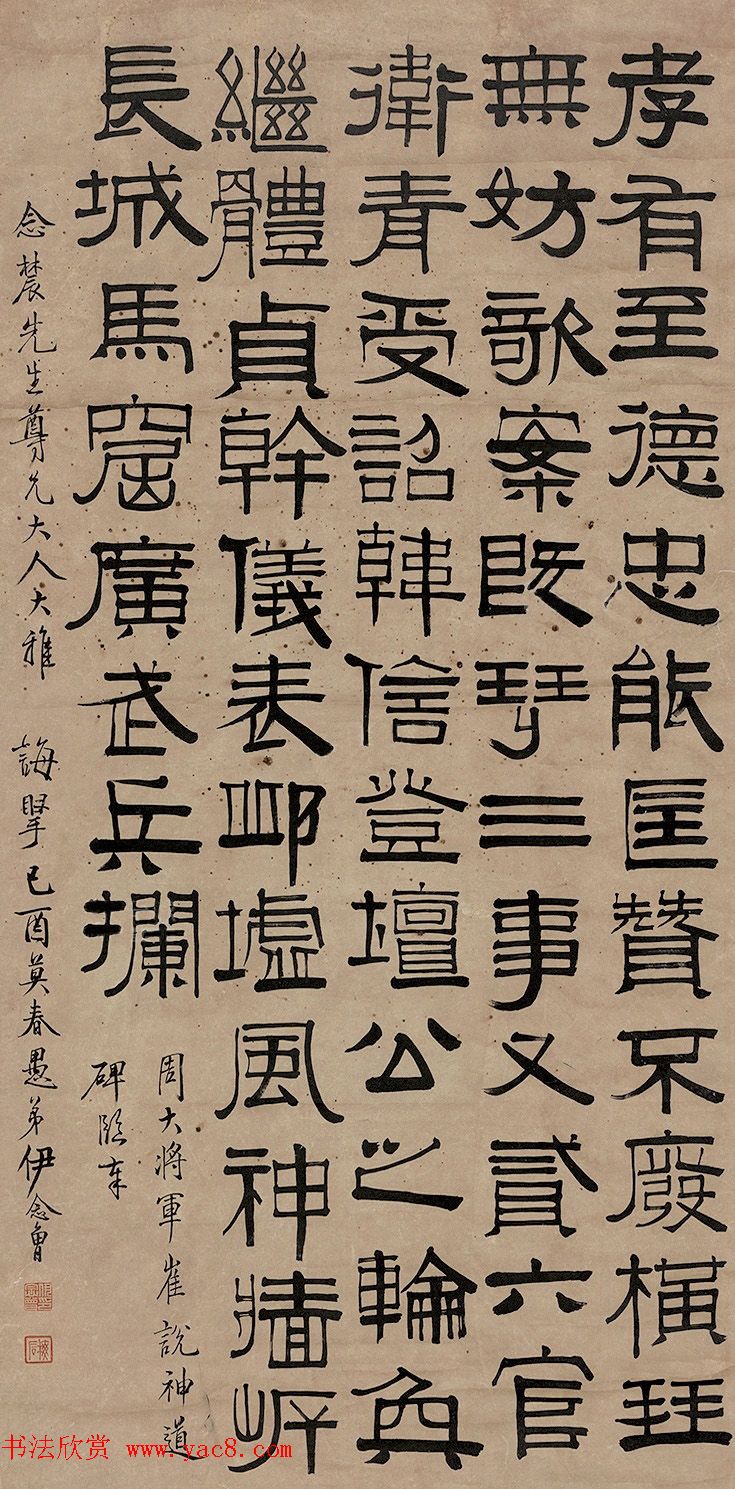 孝有至德忠能匡贊不廢橫
無妨歌案既三事又貳六官
衛青受詔韓信登壇公之輪奐
繼體貞幹儀表邱墟風神牆岸
長城馬窟廣武兵攔
周大將軍崔說神道
碑臨奉
念辳先生尊兄大人大雅 誨 己酉莫春愚弟伊念曾
书法欣赏 www.yac8.com